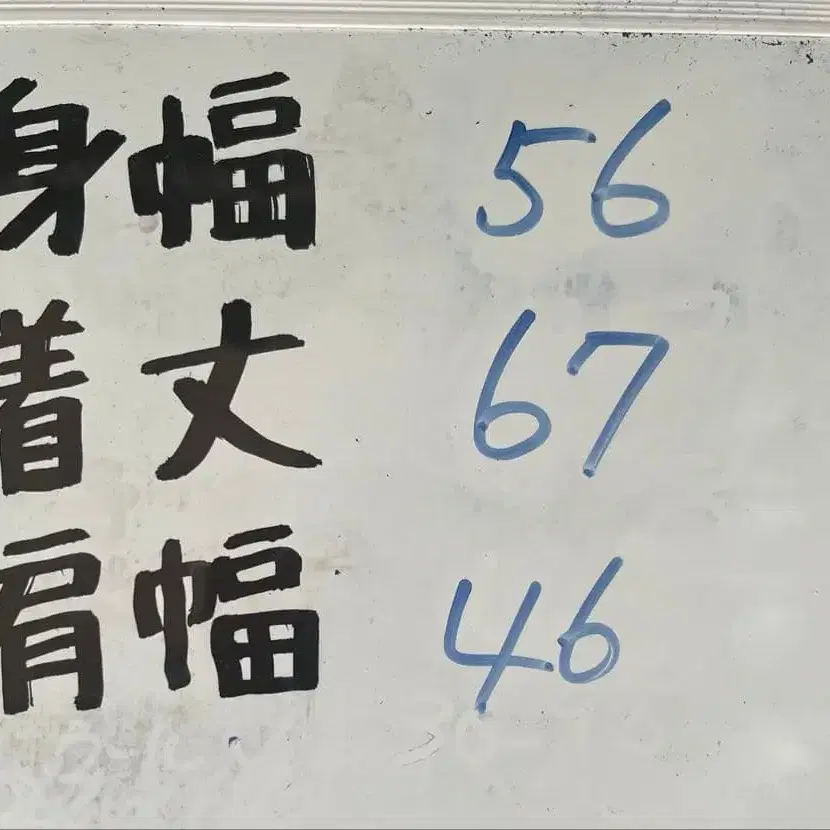 身幅 56
着丈 67
肩幅 46